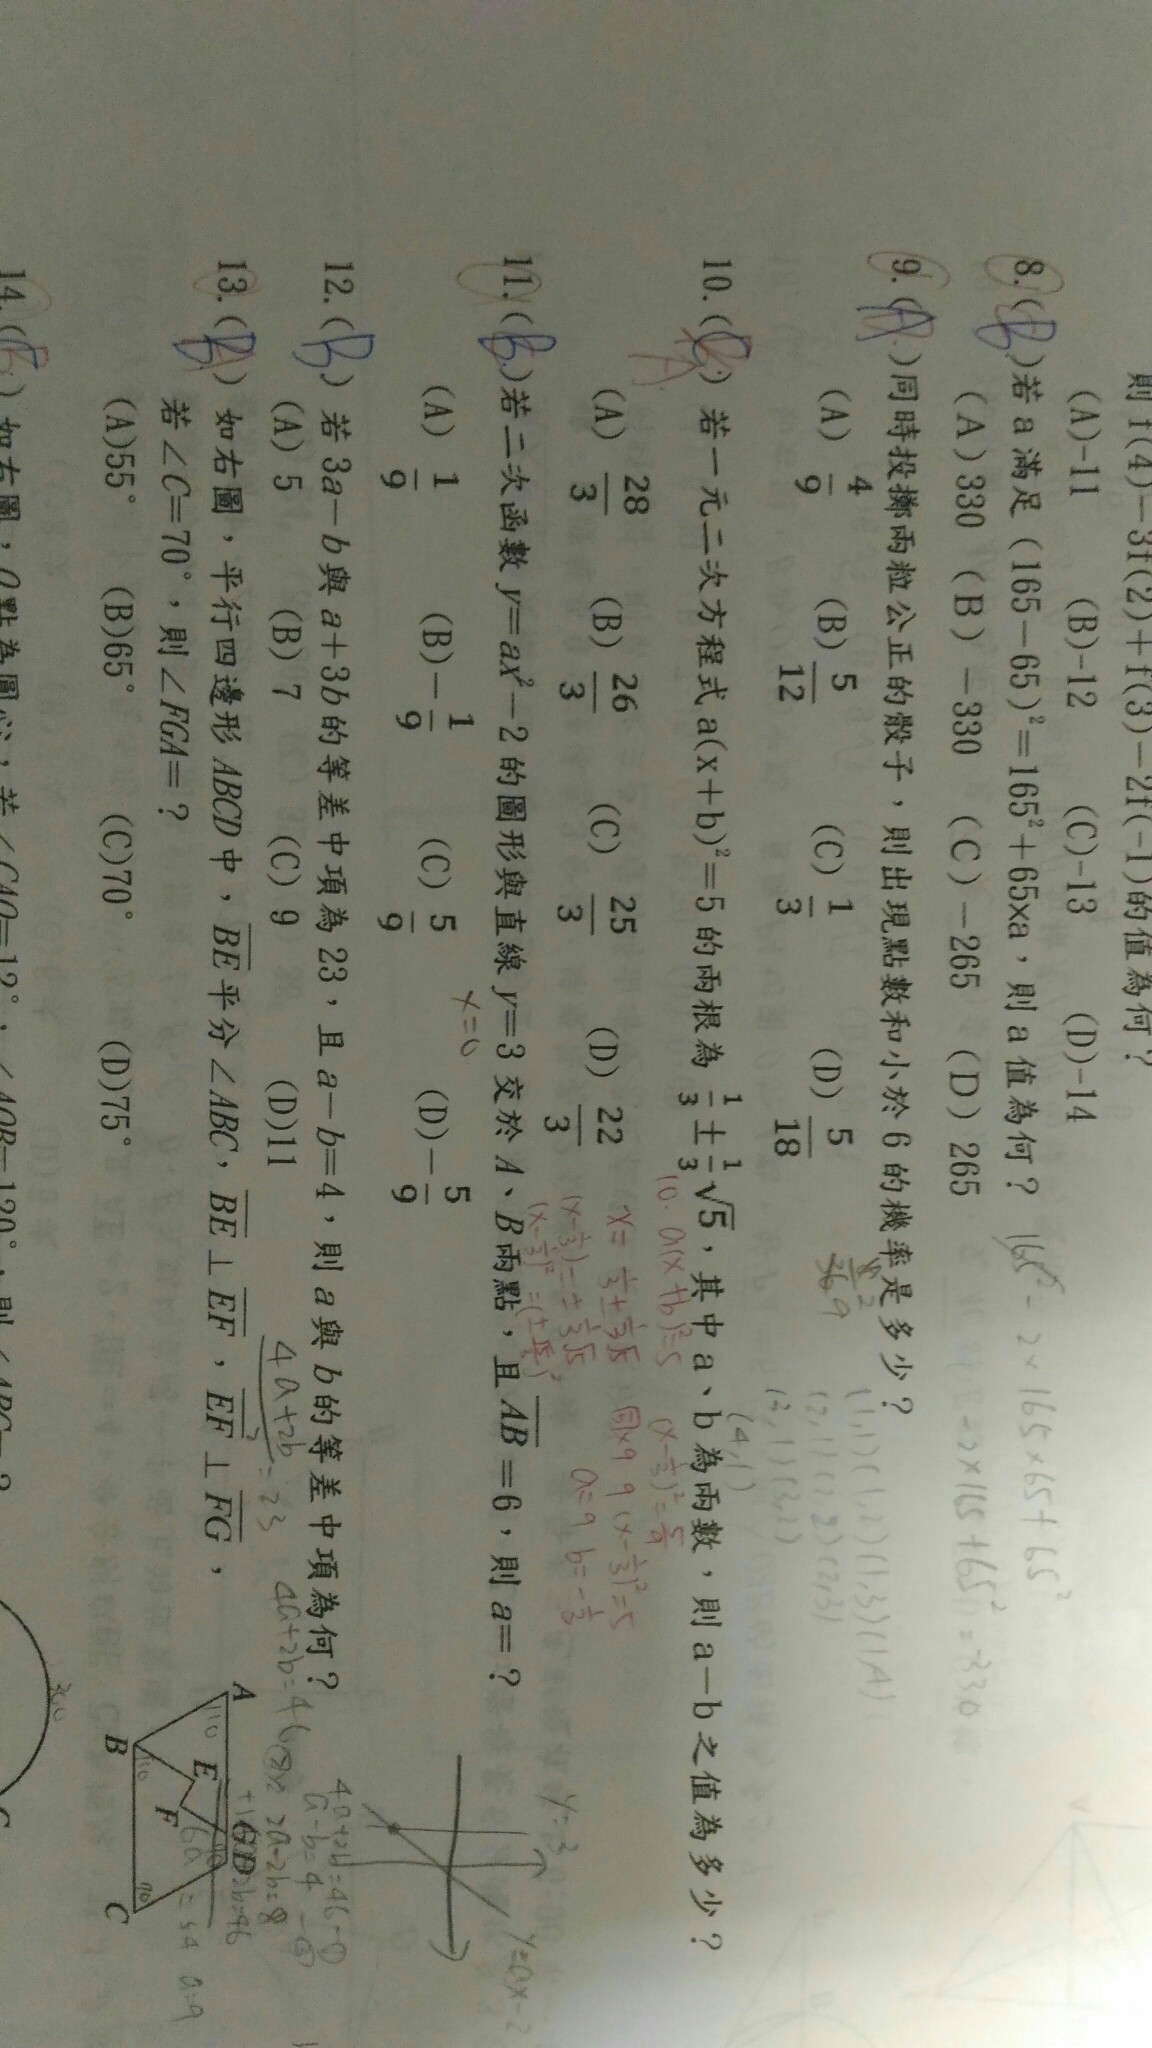 則f(4)-3f(2)+f(3)-2f(-1)的值為何？
(A)-11 (B)-12 (C)-13 (D)-14
8.(B)若a滿足(165-65)²=165²+65xa，則a值為何？
(A)330 (B)-330 (C)-265 (D)265
9.(A)同時投擲兩粒公正的骰子，則出現點數和小於6的機率是多少？
(A) 4/9 (B) 5/12 (C) 1/3 (D) 5/18
(1,1)(1,2)(1,3)(1,4)
(2,1)(2,2)(2,3)
(3,1)(3,2)
(4,1)
10.( ) 若一元二次方程式a(x+b)²=5的兩根為 1/3 ± 1/3 √5，其中a、b為兩數，則a-b之值為多少？
(A) 28/3 (B) 26/3 (C) 25/3 (D) 22/3
10. a(x+b)²=5
x= 1/3 ± 1/3 √5
(x-1/3)= ± 1/3 √5
(x-1/3)²=5/9
同x9 9(x-1/3)²=5
a=9 b=-1/3
11.(B)若二次函數y=ax²-2的圖形與直線y=3交於A、B兩點，且AB=6，則a=？
x=0
(A) 1/9 (B)- 1/9 (C) 5/9 (D)- 5/9
y=ax-2
12.(B) 若3a-b與a+3b的等差中項為23，且a-b=4，則a與b的等差中項為何？
(A)5 (B)7 (C)9 (D)11
4a+2b/2=23 4a+2b=46
4a+2b=46-①
a-b=4 -②
2a-2b=8
6a=54 a=9
13.( ) 如右圖，平行四邊形ABCD中，BE平分∠ABC，BE⊥EF，EF⊥FG，
若∠C=70°，則∠FGA=？
(A)55° (B)65° (C)70° (D)75°
A E G D
B F C
110 70
14.(B) 如右圖，O點為圓心，若∠CAO=12°，∠AOB=120°，則∠ABC=？